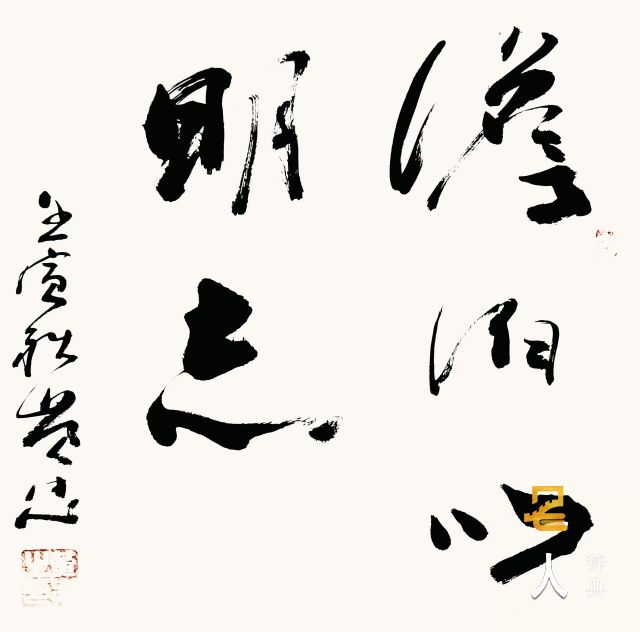 澹泊以
明志
壬寅秋黄
名人
辞典